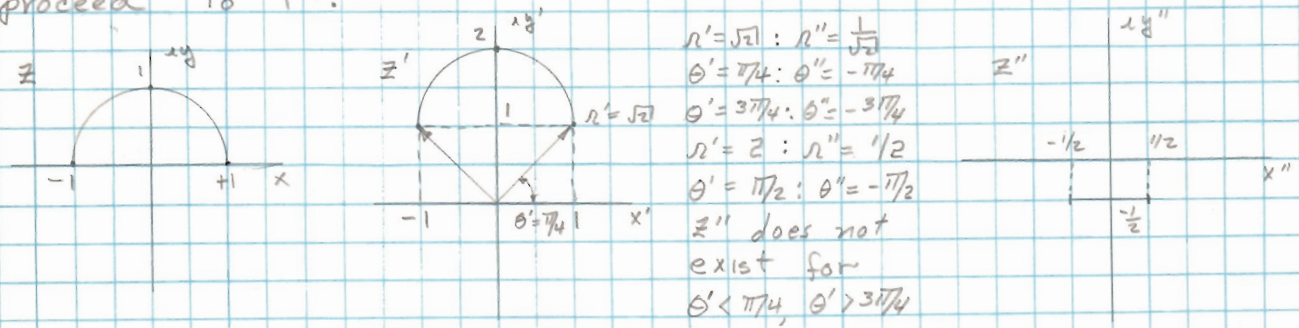 proceed to 1.
Z
iy
1
-1
+1
x
Z'
iy'
2
1
r' = √2
-1
θ' = π/4
1
x'
r' = √2 : r'' = 1/√2
θ' = π/4 : θ'' = -π/4
θ' = 3π/4 : θ'' = -3π/4
r' = 2 : r'' = 1/2
θ' = π/2 : θ'' = -π/2
Z'' does not
exist for
θ' < π/4, θ' > 3π/4
Z''
iy''
-1/2
1/2
x''
-1/2